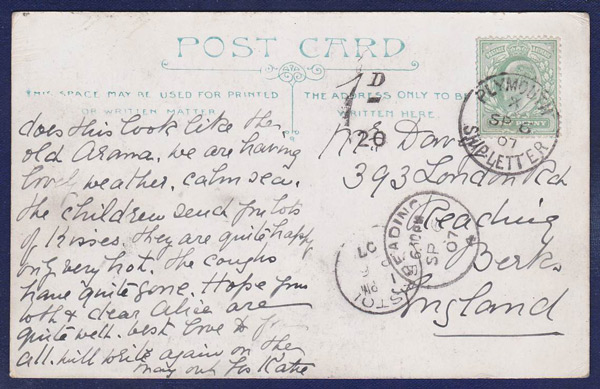 POST CARD
THIS SPACE MAY BE USED FOR PRINTED
OR WRITTEN MATTER
THE ADDRESS ONLY TO BE
WRITTEN HERE
does this look like the
old Asama. We are having
lovely weather, calm sea.
The children send you lots
of kisses. They are quite happy
only very hot. The coughs
have quite gone. Hope you
both & dear Alice are
quite well. best love to
all. will write again on the
way out Yrs Katie
1D
20
Davis
393 London Rd
Reading
Berks
England
PLYMOUTH
X
SP 6
07
SHIP LETTER
READING
6.10PM
SP
07
07